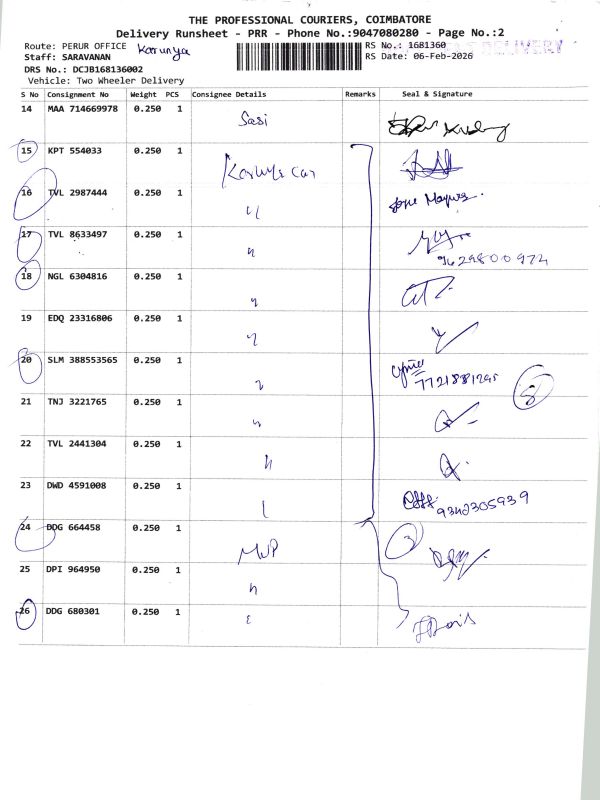 THE PROFESSIONAL COURIERS, COIMBATORE
Delivery Runsheet - PRR - Phone No.:9047080280 - Page No.:2
Route: PERUR OFFICE Karunya
RS No.: 1681360 DELIVERY
Staff: SARAVANAN
RS Date: 06-Feb-2026
DRS No.: DCJB168136002
Vehicle: Two Wheeler Delivery
S No Consignment No Weight PCS Consignee Details Remarks Seal & Signature
14 MAA 714669978 0.250 1 Sasi
15 KPT 554033 0.250 1
16 TVL 2987444 0.250 1 "
17 TVL 8633497 0.250 1 "
9629800972
18 NGL 6304816 0.250 1 "
19 EDQ 23316806 0.250 1 "
20 SLM 388553565 0.250 1 "
7721881295
8
21 TNJ 3221765 0.250 1 "
22 TVL 2441304 0.250 1 "
23 DWD 4591008 0.250 1
9342305939
24 DDG 664458 0.250 1 MVP
3
25 DPI 964950 0.250 1 "
26 DDG 680301 0.250 1